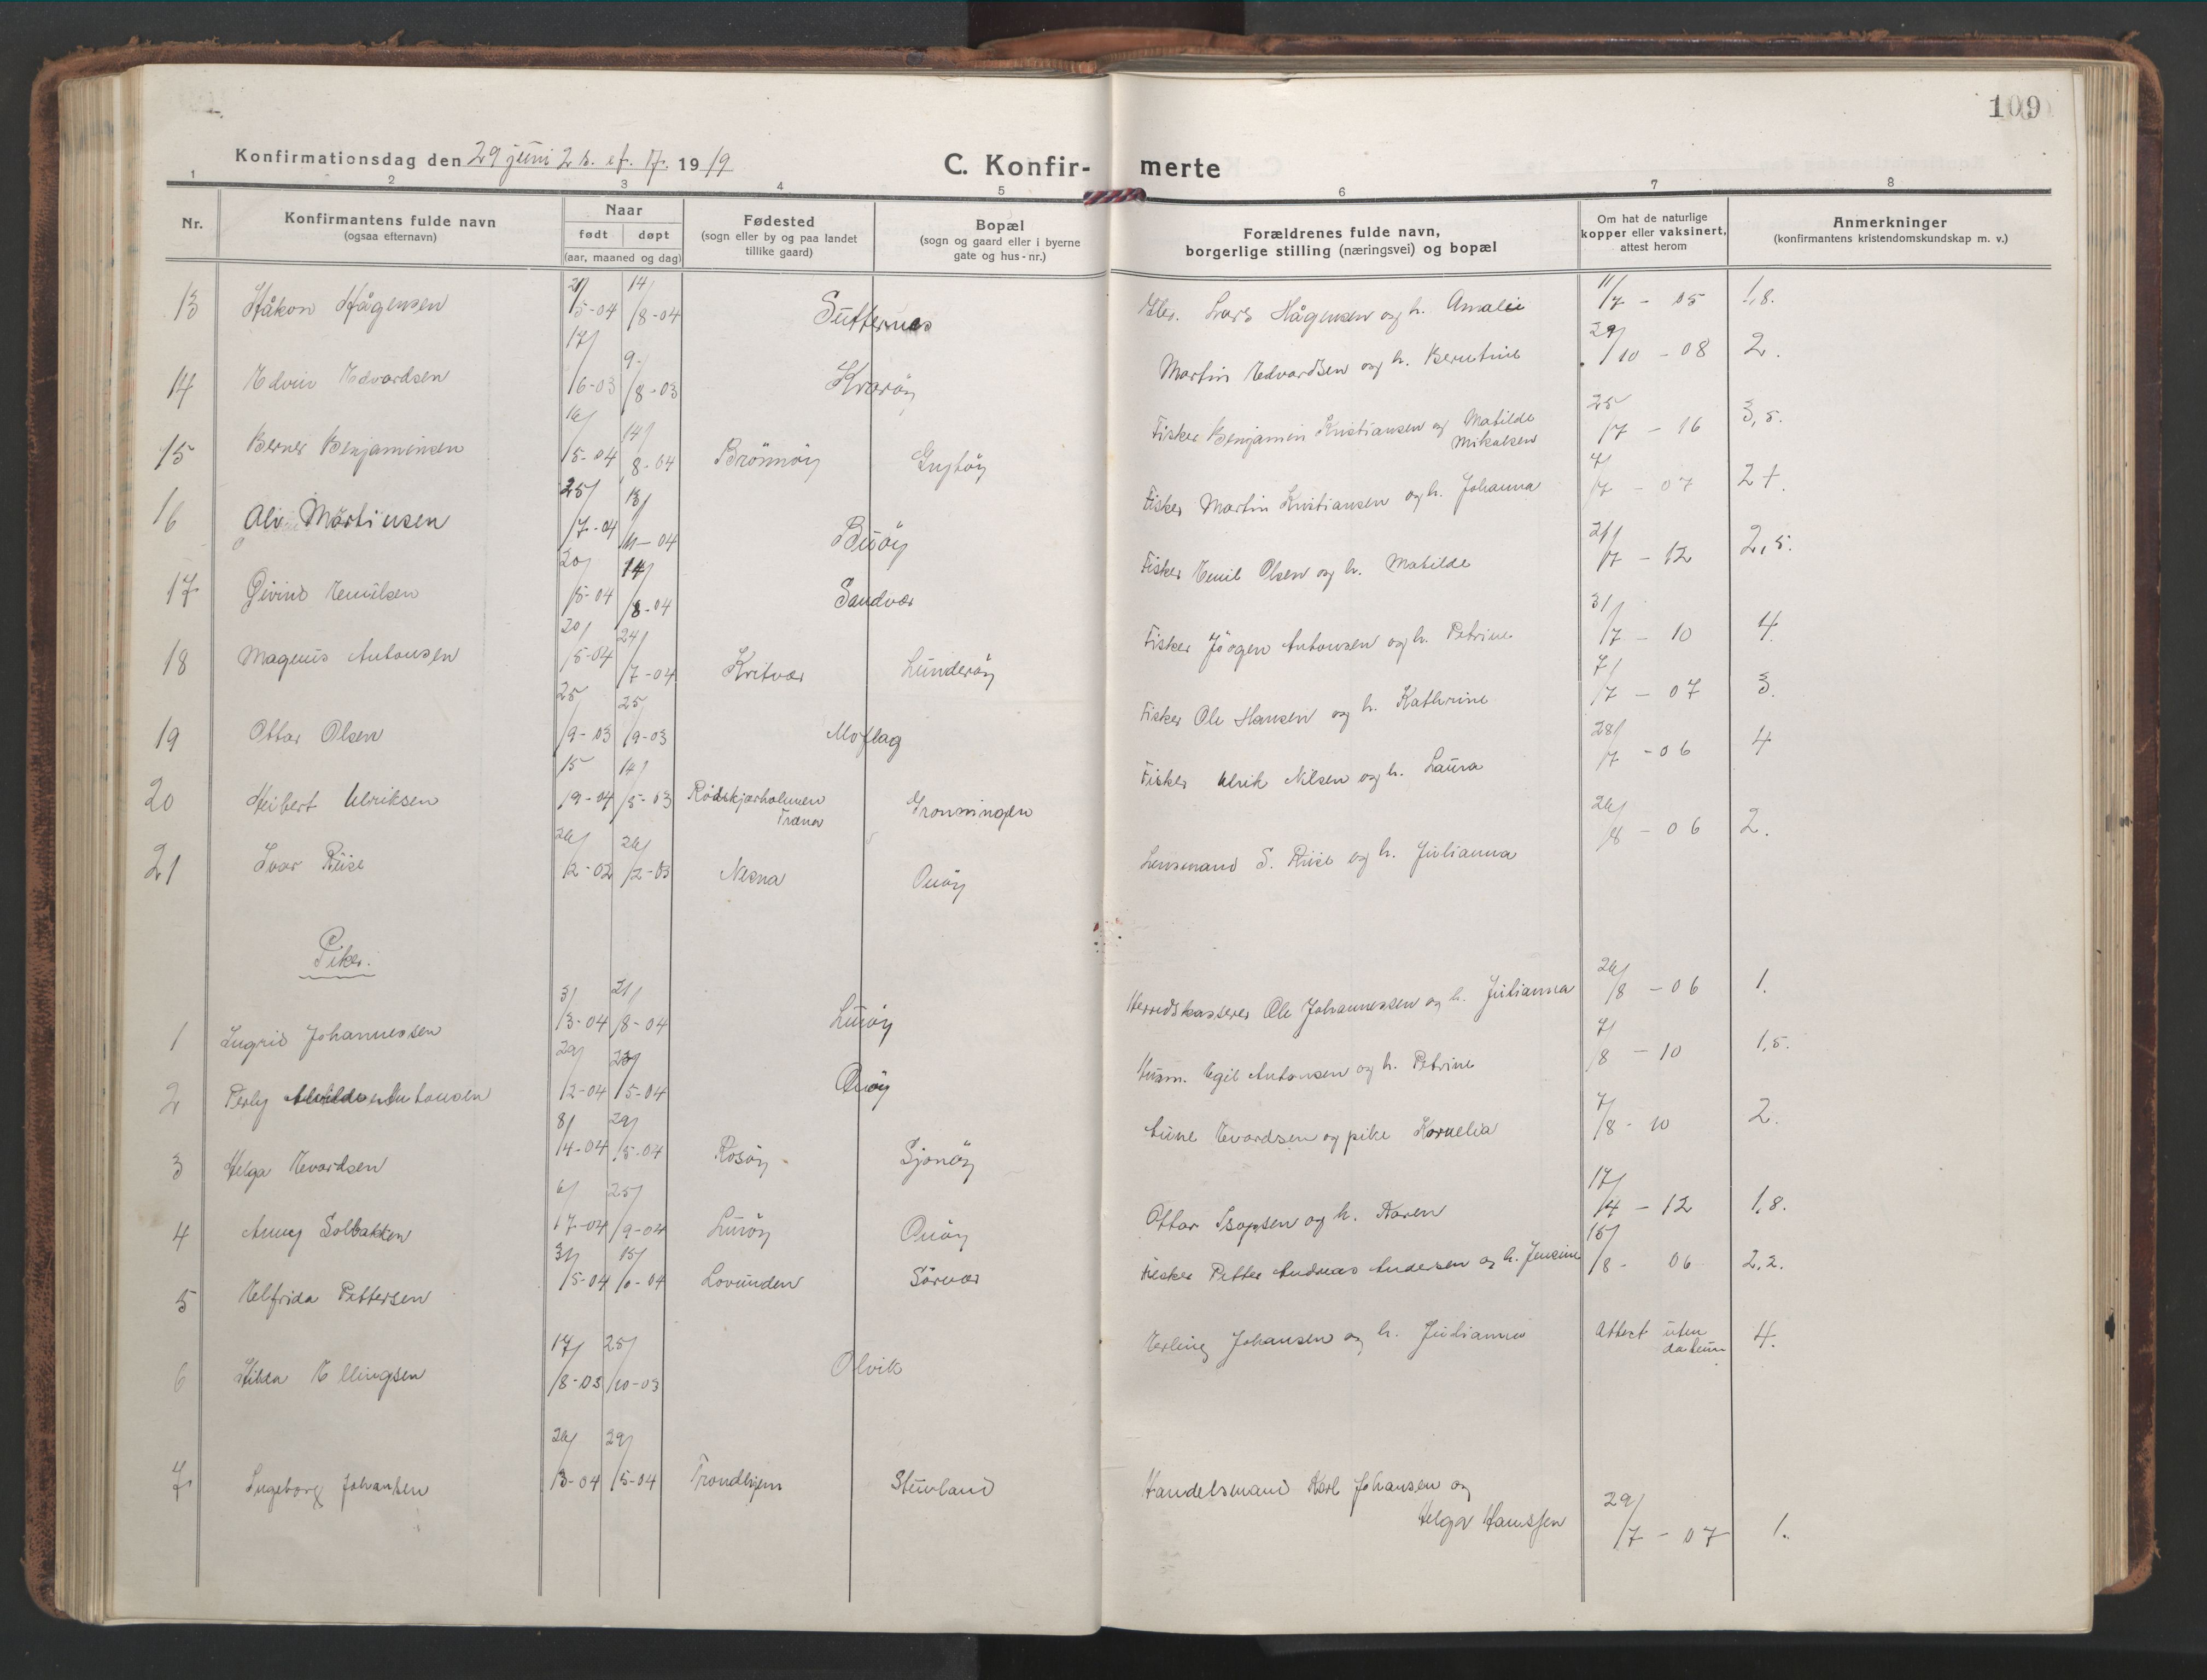 109
Konfirmationsdag den 29 juni 2 s. ef. p. 1919
C. Konfir- merte
1 2 3 4 5 6 7 8
Nr.
Konfirmantens fulde navn
(ogsaa efternavn)
Naar
født døpt
(aar, maaned og dag)
Fødested
(sogn eller by og paa landet
tillike gaard)
Bopæl
(sogn og gaard eller i byerne
gate og hus-nr.)
Forældrenes fulde navn,
borgerlige stilling (næringsvei) og bopæl
Om hat de naturlige
kopper eller vaksinert,
attest herom
Anmerkninger
(konfirmantens kristendomskundskap m. v.)
13 Håkon Hågensen /5-04 14/8-04 Lars Hågensen og h. Amalie 11/7 - 05 1,8.
14 Edvin Edvardsen 17/6-03 9/8-03 Kvarøy Martin Edvardsen og h. Berntine 29/10 - 08 2.
15 Berner Benjaminsen 16/5-04 14/8-04 Brönnöy Fisker Benjamin Kristiansen og Matilde
Mikalsen 25/7 - 16 3,5.
16 Alv Martinsen 25/7-04 13/11-04 Buöy Fisker Martin Kristiansen og h. Johanna 7/7 - 07 2+.
17 Øivind Emilsen 20/5-04 14/8-04 Sandvær Fisker Emil Olsen og h. Matilde 21/7 - 12 2,5.
18 Magnus Antonsen 20/5-04 24/7-04 Kritvær Lunderöy Fisker Jörgen Antonsen og h. Petrine 31/7 - 10 4.
19 Ottar Olsen 25/9-03 25/9-03 Moflag Fisker Ole Hansen og h. Kathrine 7/7 - 07 3.
20 Heibert Ulriksen 15/9-04 14/5-03 Rödskjærholmen
Træna Gronningen Fisker Ulrik Nilsen og h. Laura 28/7 - 06 4
21 Ivar Riise 26/2-02 26/2-03 Nesna Onöy Lensmand S. Riise og h. Julianna 26/8 - 06 2.
Piker.
1 Ingrid Johannessen 3/3-04 21/8-04 Luröy Herredskasserer Ole Johannessen og h. Julianna 26/8 - 06 1.
2 Antonsen 29/2-04 /5-04 Onöy Husm. Egil Antonsen og h. Petrine 7/8 - 10 1,5.
3 Helga Evardsen 8/4-04 29/5-04 Rosöy Sjonöy Aune Evardsen og pike Kornelia 7/8 - 10 2.
4 Anny Solbakken 6/7-04 25/9-04 Luröy Onöy Ottar Isaksen og h. Karen 17/4 - 12 1,8.
5 Elfrida Pettersen 31/5-04 15/10-04 Lovunden Sörvær Fisker Petter Andreas Andersen og h. Jensine 15/8 - 06 2,2.
6 Hilda Ellingsen 17/8-03 25/10-03 Olvik Erling Johansen og h. Julianna Attest uten
datum 4.
7 Ingeborg Johansen 26/3-04 29/5-04 Trondhjem Stuvland Handelsmand Karl Johansen og
Helga Hanssen 29/7 - 07 1.